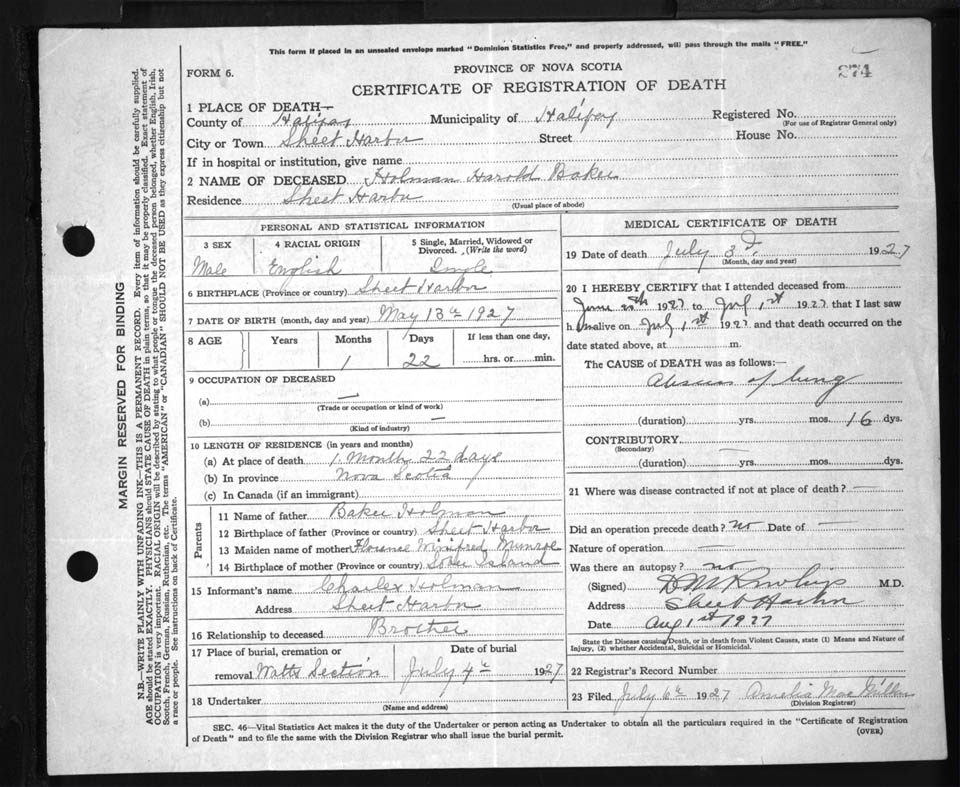 This form if placed in an unsealed envelope marked "Dominion Statistics Free," and properly addressed, will pass through the mails "FREE."
FORM 6.
PROVINCE OF NOVA SCOTIA
274
CERTIFICATE OF REGISTRATION OF DEATH
1 PLACE OF DEATH—
County of Halifax Municipality of Halifax Registered No.
(For use of Registrar General only)
City or Town Sheet Harbor Street House No.
If in hospital or institution, give name
2 NAME OF DECEASED Holman Harold Baker
Residence Sheet Harbor
(Usual place of abode)
PERSONAL AND STATISTICAL INFORMATION
3 SEX 4 RACIAL ORIGIN 5 Single, Married, Widowed or Divorced. (Write the word)
Male English Single
6 BIRTHPLACE (Province or country) Sheet Harbor
7 DATE OF BIRTH (month, day and year) May 13th 1927
8 AGE Years Months Days If less than one day,
1 22 hrs. or min.
9 OCCUPATION OF DECEASED
(a) —
(Trade or occupation or kind of work)
(b) —
(Kind of industry)
10 LENGTH OF RESIDENCE (in years and months)
(a) At place of death 1 Month 22 days
(b) In province Nova Scotia
(c) In Canada (if an immigrant)
Parents
11 Name of father Baker Holman
12 Birthplace of father (Province or country) Sheet Harbor
13 Maiden name of mother Florence Winifred Munroe
14 Birthplace of mother (Province or country) Island
15 Informant's name Charles Holman
Address Sheet Harbor
16 Relationship to deceased Brother
17 Place of burial, cremation or Date of burial
removal Watts Section July 4th 1927
18 Undertaker
(Name and address)
MEDICAL CERTIFICATE OF DEATH
19 Date of death July 3d 1927
(Month, day and year)
20 I HEREBY CERTIFY that I attended deceased from
June 1927 to July 1st 1927 that I last saw
h im alive on July 1st 1927 and that death occurred on the
date stated above, at m.
The CAUSE of DEATH was as follows:—
Abscess of lung
(duration) yrs. mos. 16 dys.
CONTRIBUTORY —
(Secondary)
(duration) yrs. mos. dys.
21 Where was disease contracted if not at place of death? —
Did an operation precede death? no Date of —
Nature of operation —
Was there an autopsy? no
(Signed) M.D.
Address Sheet Harbor
Date Aug 1st 1927
State the Disease causing Death, or in death from Violent Causes, state (1) Means and Nature of
Injury, (2) whether Accidental, Suicidal or Homicidal.
22 Registrar's Record Number
23 Filed July 6th 1927 Amelia
(Division Registrar)
SEC. 46—Vital Statistics Act makes it the duty of the Undertaker or person acting as Undertaker to obtain all the particulars required in the "Certificate of Registration
of Death" and to file the same with the Division Registrar who shall issue the burial permit.
(OVER)
MARGIN RESERVED FOR BINDING
N.B.—WRITE PLAINLY WITH UNFADING INK—THIS IS A PERMANENT RECORD. Every item of information should be carefully supplied.
AGE should be stated EXACTLY. PHYSICIANS should STATE CAUSE OF DEATH in plain terms, so that it may be properly classified. Exact statement of
OCCUPATION is very important. RACIAL ORIGIN will be described by stating to what people or tongue the deceased person belonged, whether English, Irish,
Scotch, French, German, Russian, Ruthenian, etc. The terms "AMERICAN" or "CANADIAN" SHOULD NOT BE USED as they express citizenship but not
a race or people. See instructions on back of Certificate.